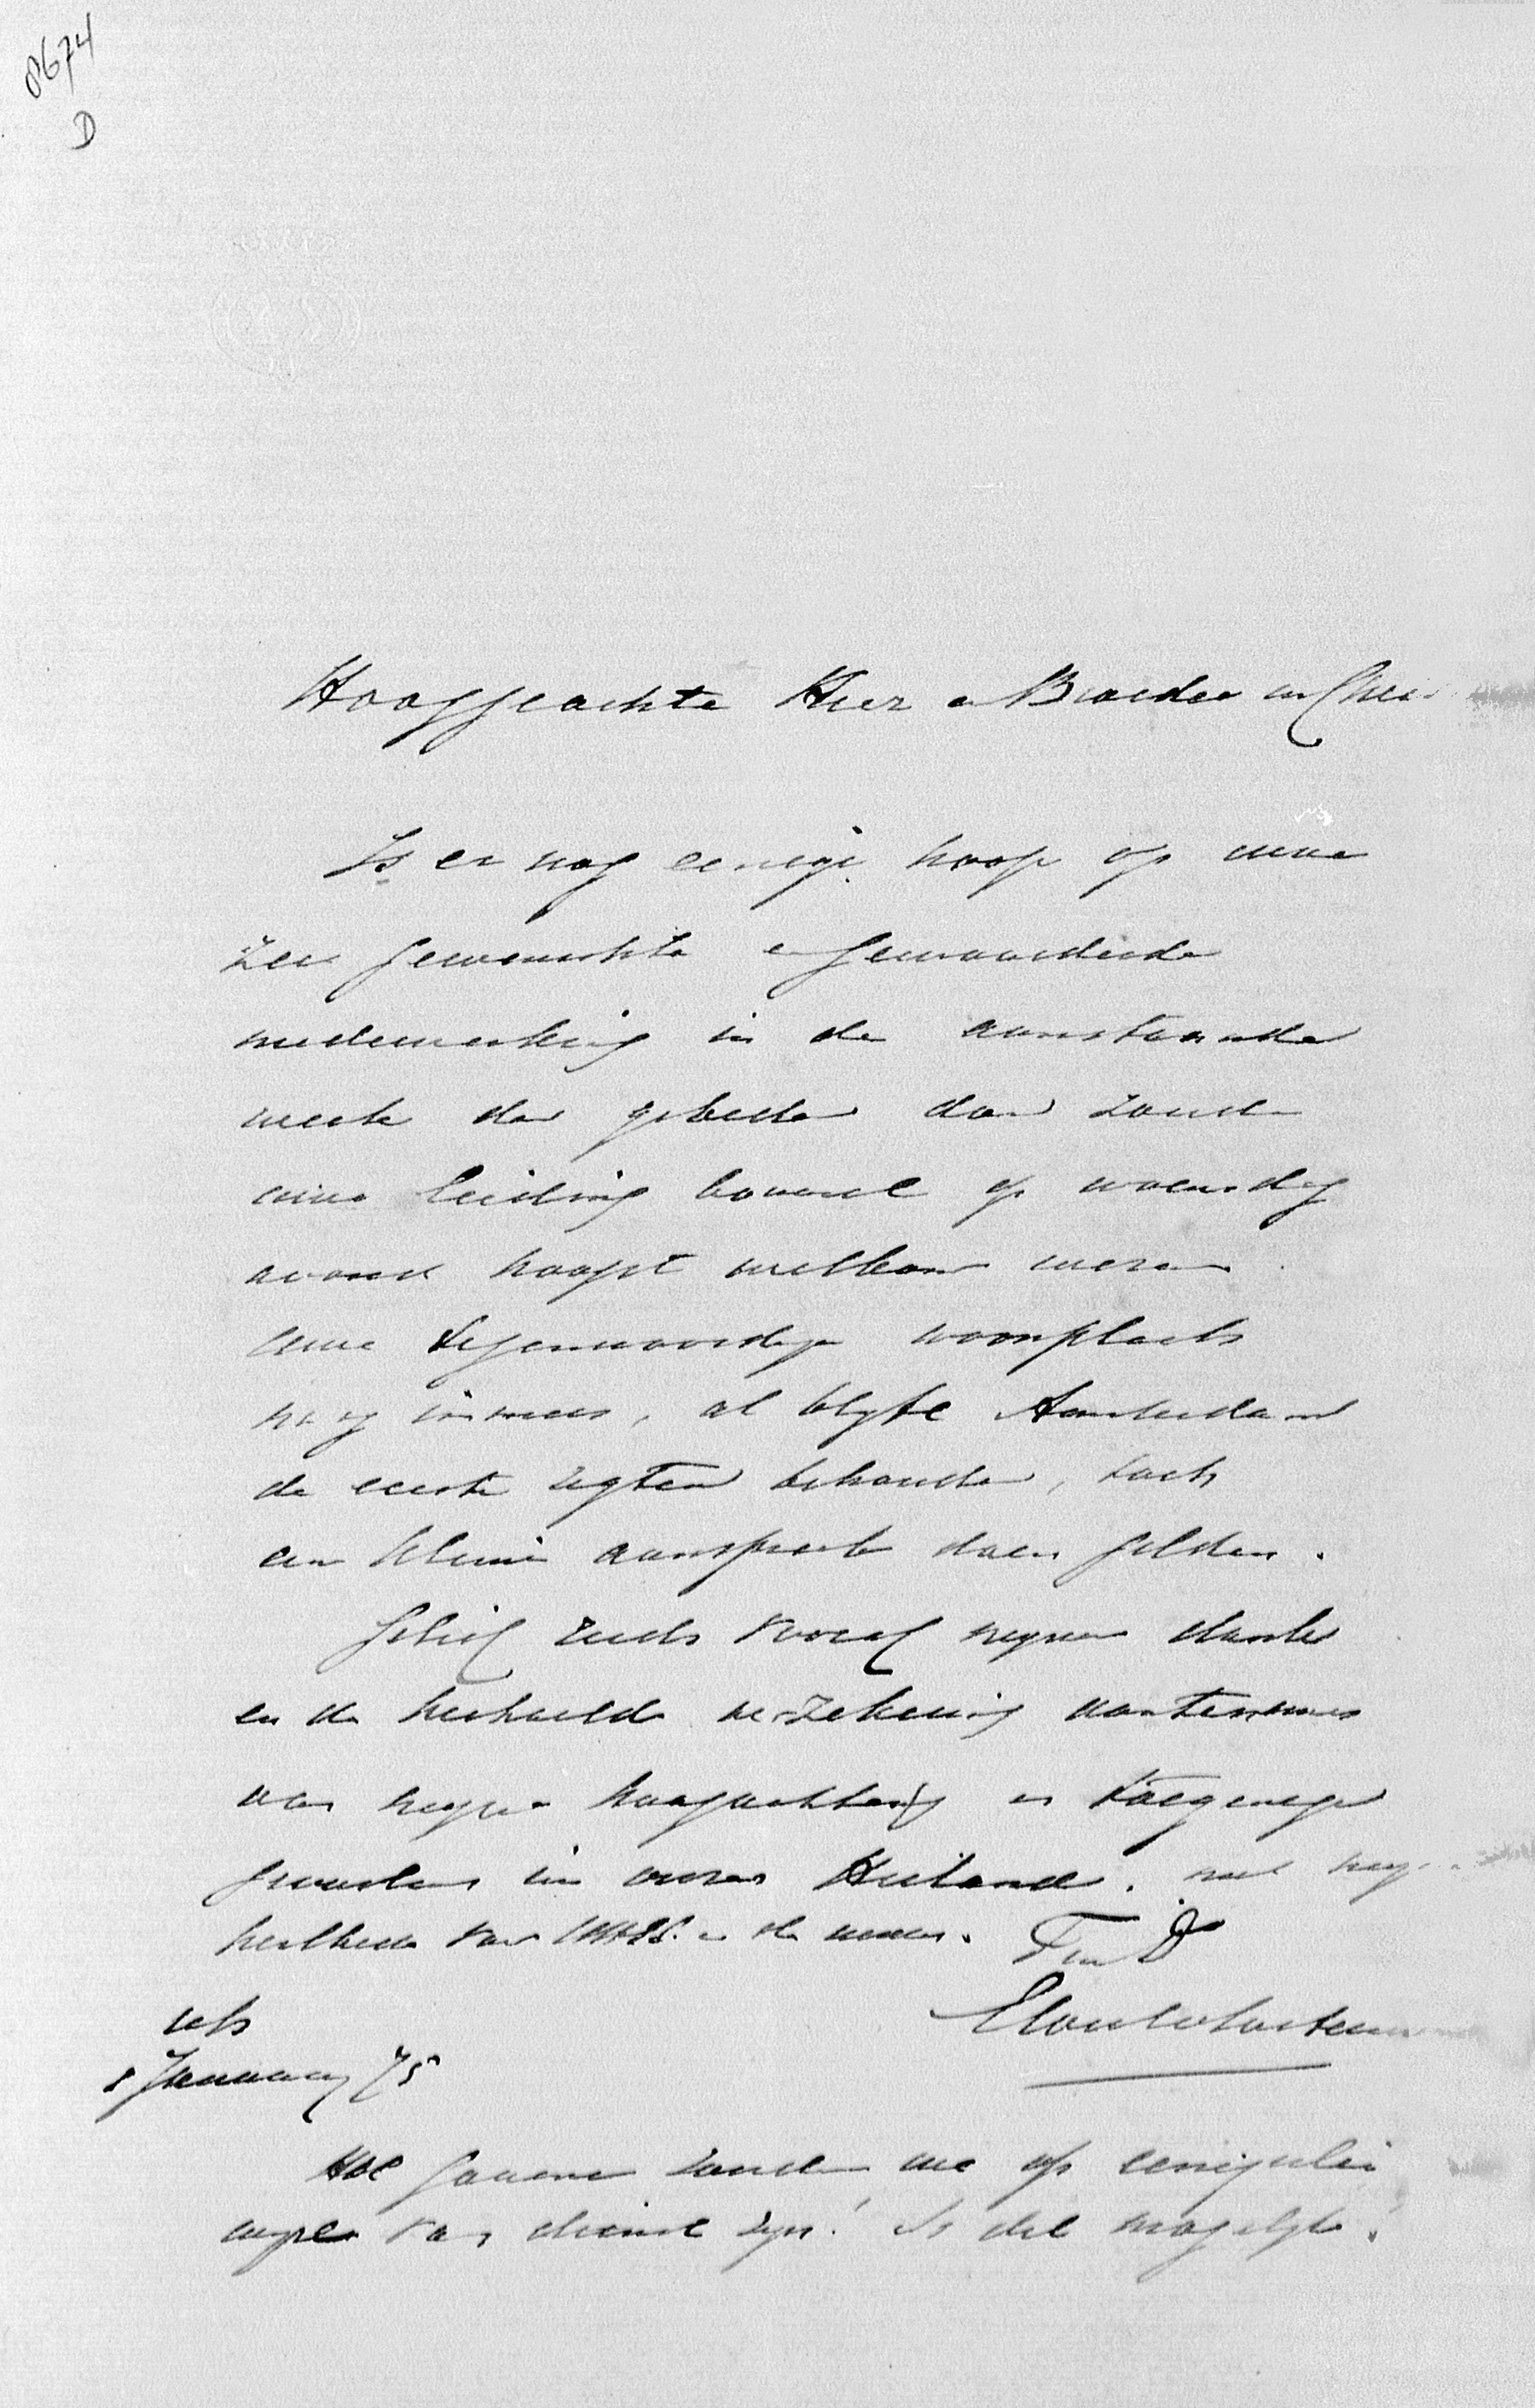 8674
D
Hooggeachte Heer en Broeder in Chris
Is er nog eenige hoop op uwe
zeer gewenschte en gewaardeerde
medewerking in de aanstaande
week der gebeden dan zoude
uwe leiding bovenal op woensdag
avond hoogst welkom wezen
uwe tegenwoordige woonplaats
mag immers, al blyft Amsterdam
de eerste regten behouden, toch
een kleine aanspraak doen gelden.
Gelief reeds vooraf mynen dank
en de herhaalde verzekering aantenemen
van myne hoogachting en toegenegen
in onzen Heiland. met
heilbede voor 1875 en de uwen.
T en D
Elout v Soeterwoude
January 75
Hoe gaarne zouden we op eenigerlei
wyze van dienst zyn! Is dit mogelyk?